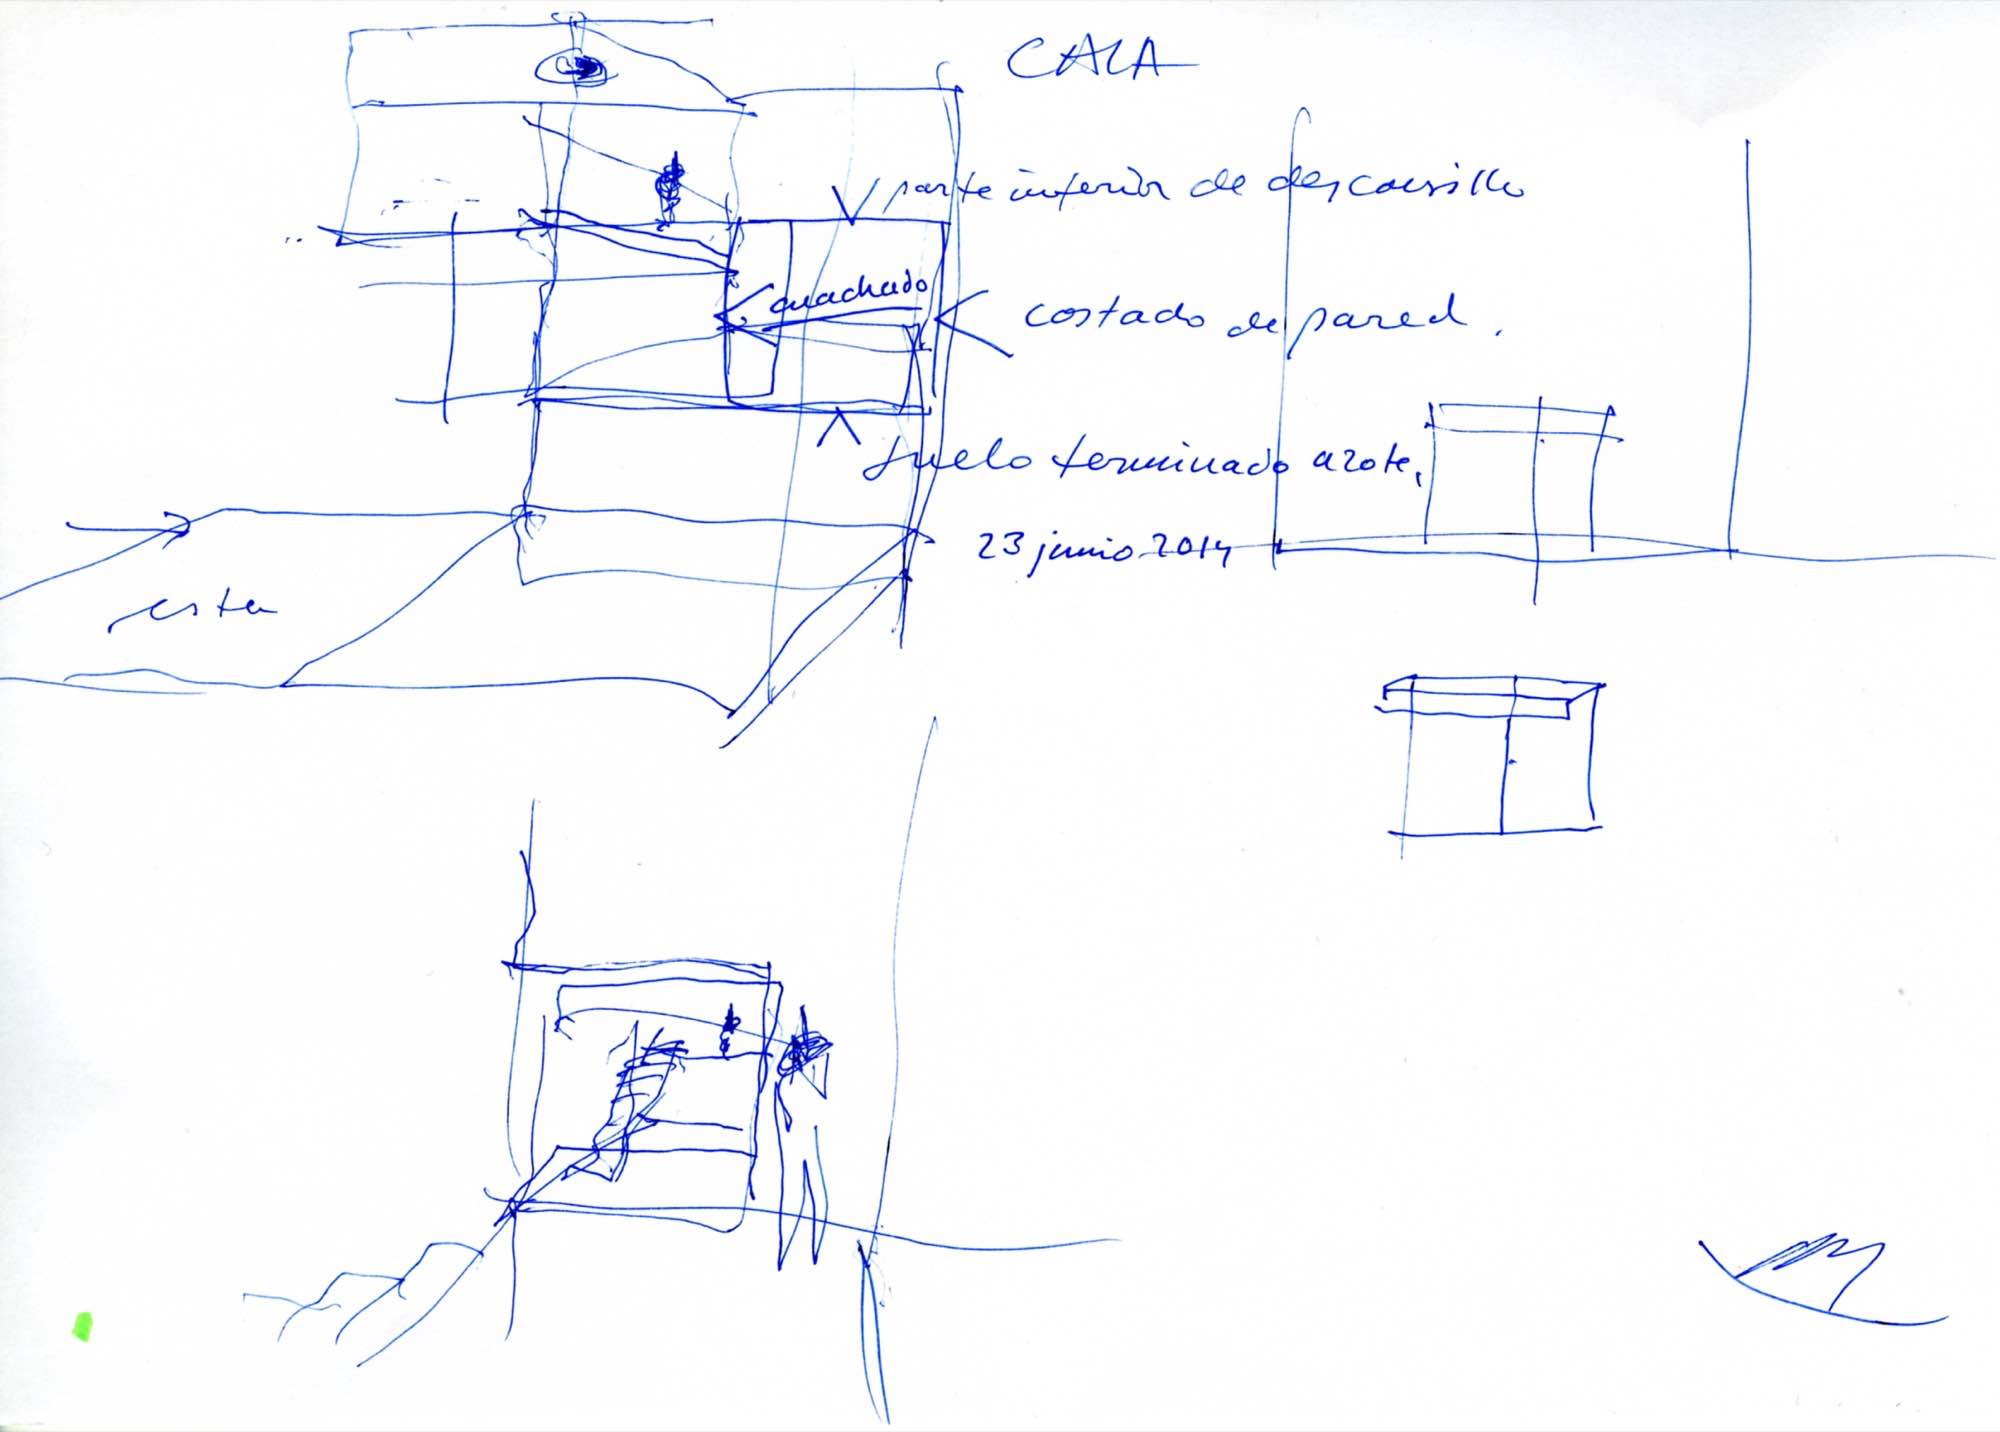 CALA
parte inferior de descansillo
cuachado
costado de pared.
suelo terminado azote,
23 junio 2014
esta